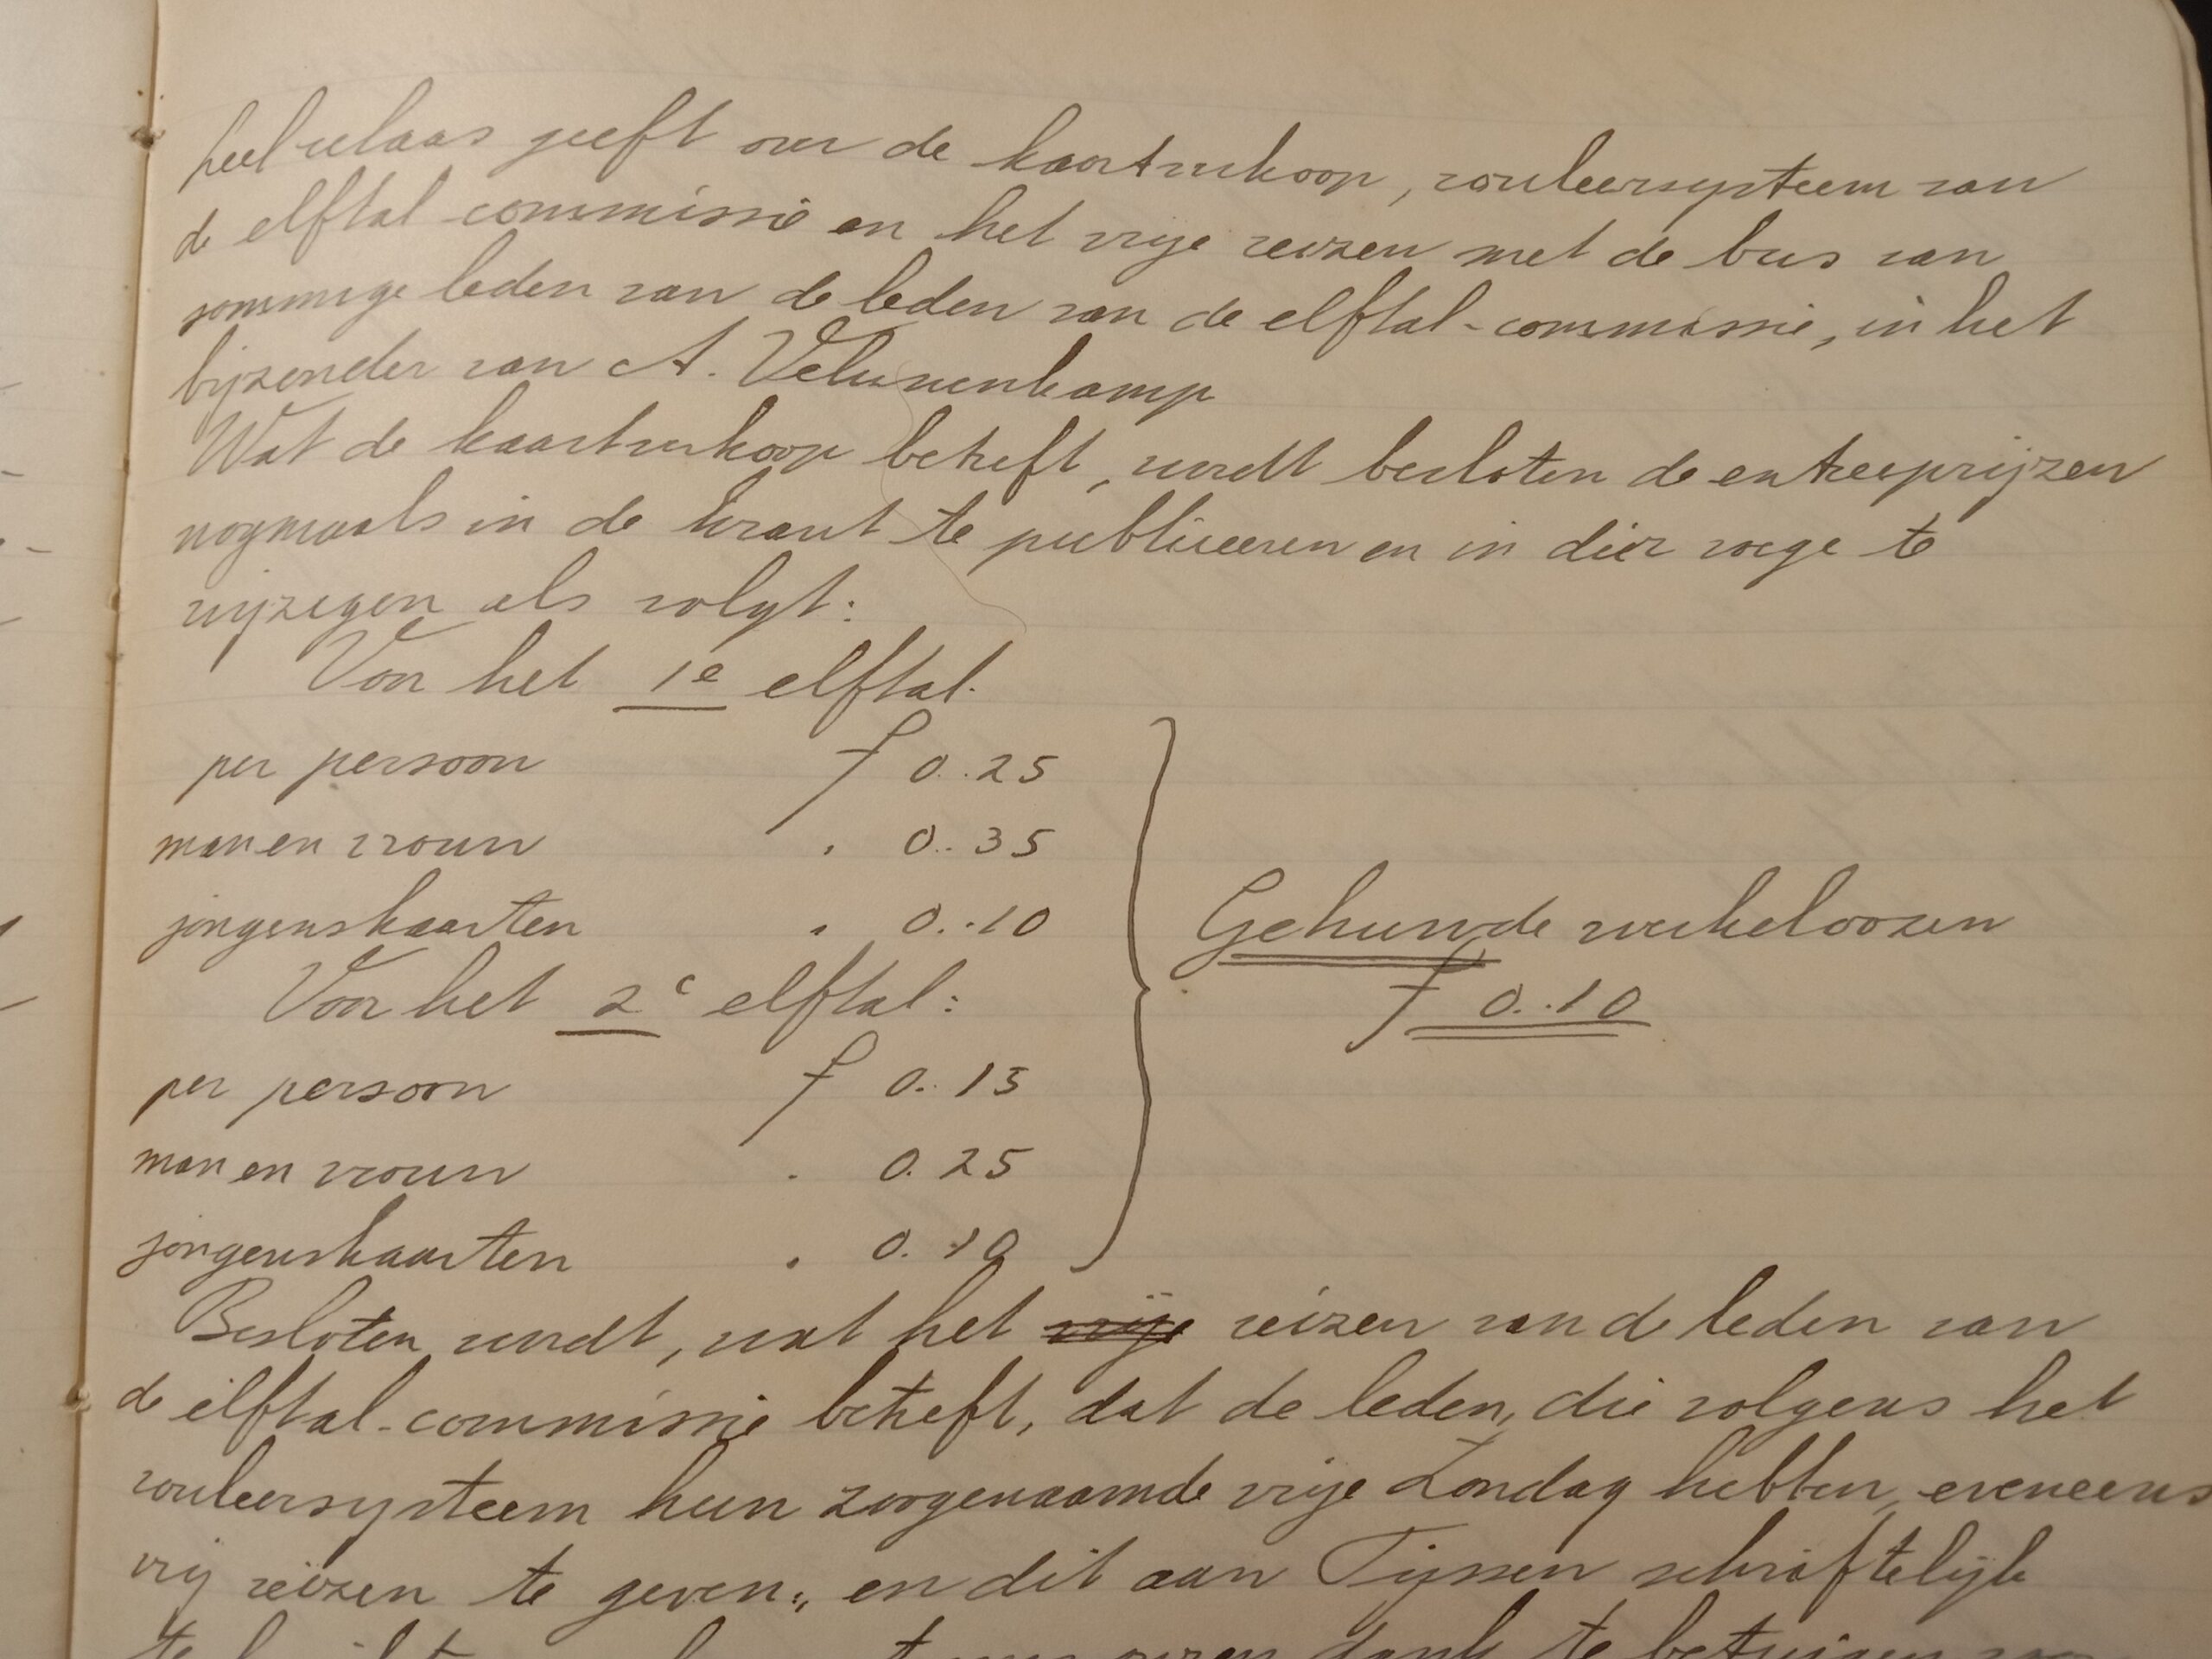 heel relaas geeft over de kaartverkoop, rouleersysteem van
de elftal commissie en het vrije reizen met de bus van
sommige leden van de leden van de elftal-commissie, in het
bijzonder van A. Veluwenkamp
Wat de kaartverkoop betreft, wordt besloten de entreeprijzen
nogmaals in de krant te publiceeren en in dier voege te
wijzigen als volgt:
Voor het 1e elftal.
per persoon f 0.25
man en vrouw " 0.35
jongenskaarten " 0.10
Gehuwde werkeloozen
f 0.10
Voor het 2e elftal:
per persoon f 0.15
man en vrouw " 0.25
jongenskaarten " 0.10
Besloten wordt, wat het vrije reizen van de leden van
de elftal-commissie betreft, dat de leden, die volgens het
rouleersysteem hun zoogenaamde vrije Zondag hebben, eveneens
vrij reizen te geven, en dit aan Tijssen schriftelijk
dank te betuigen